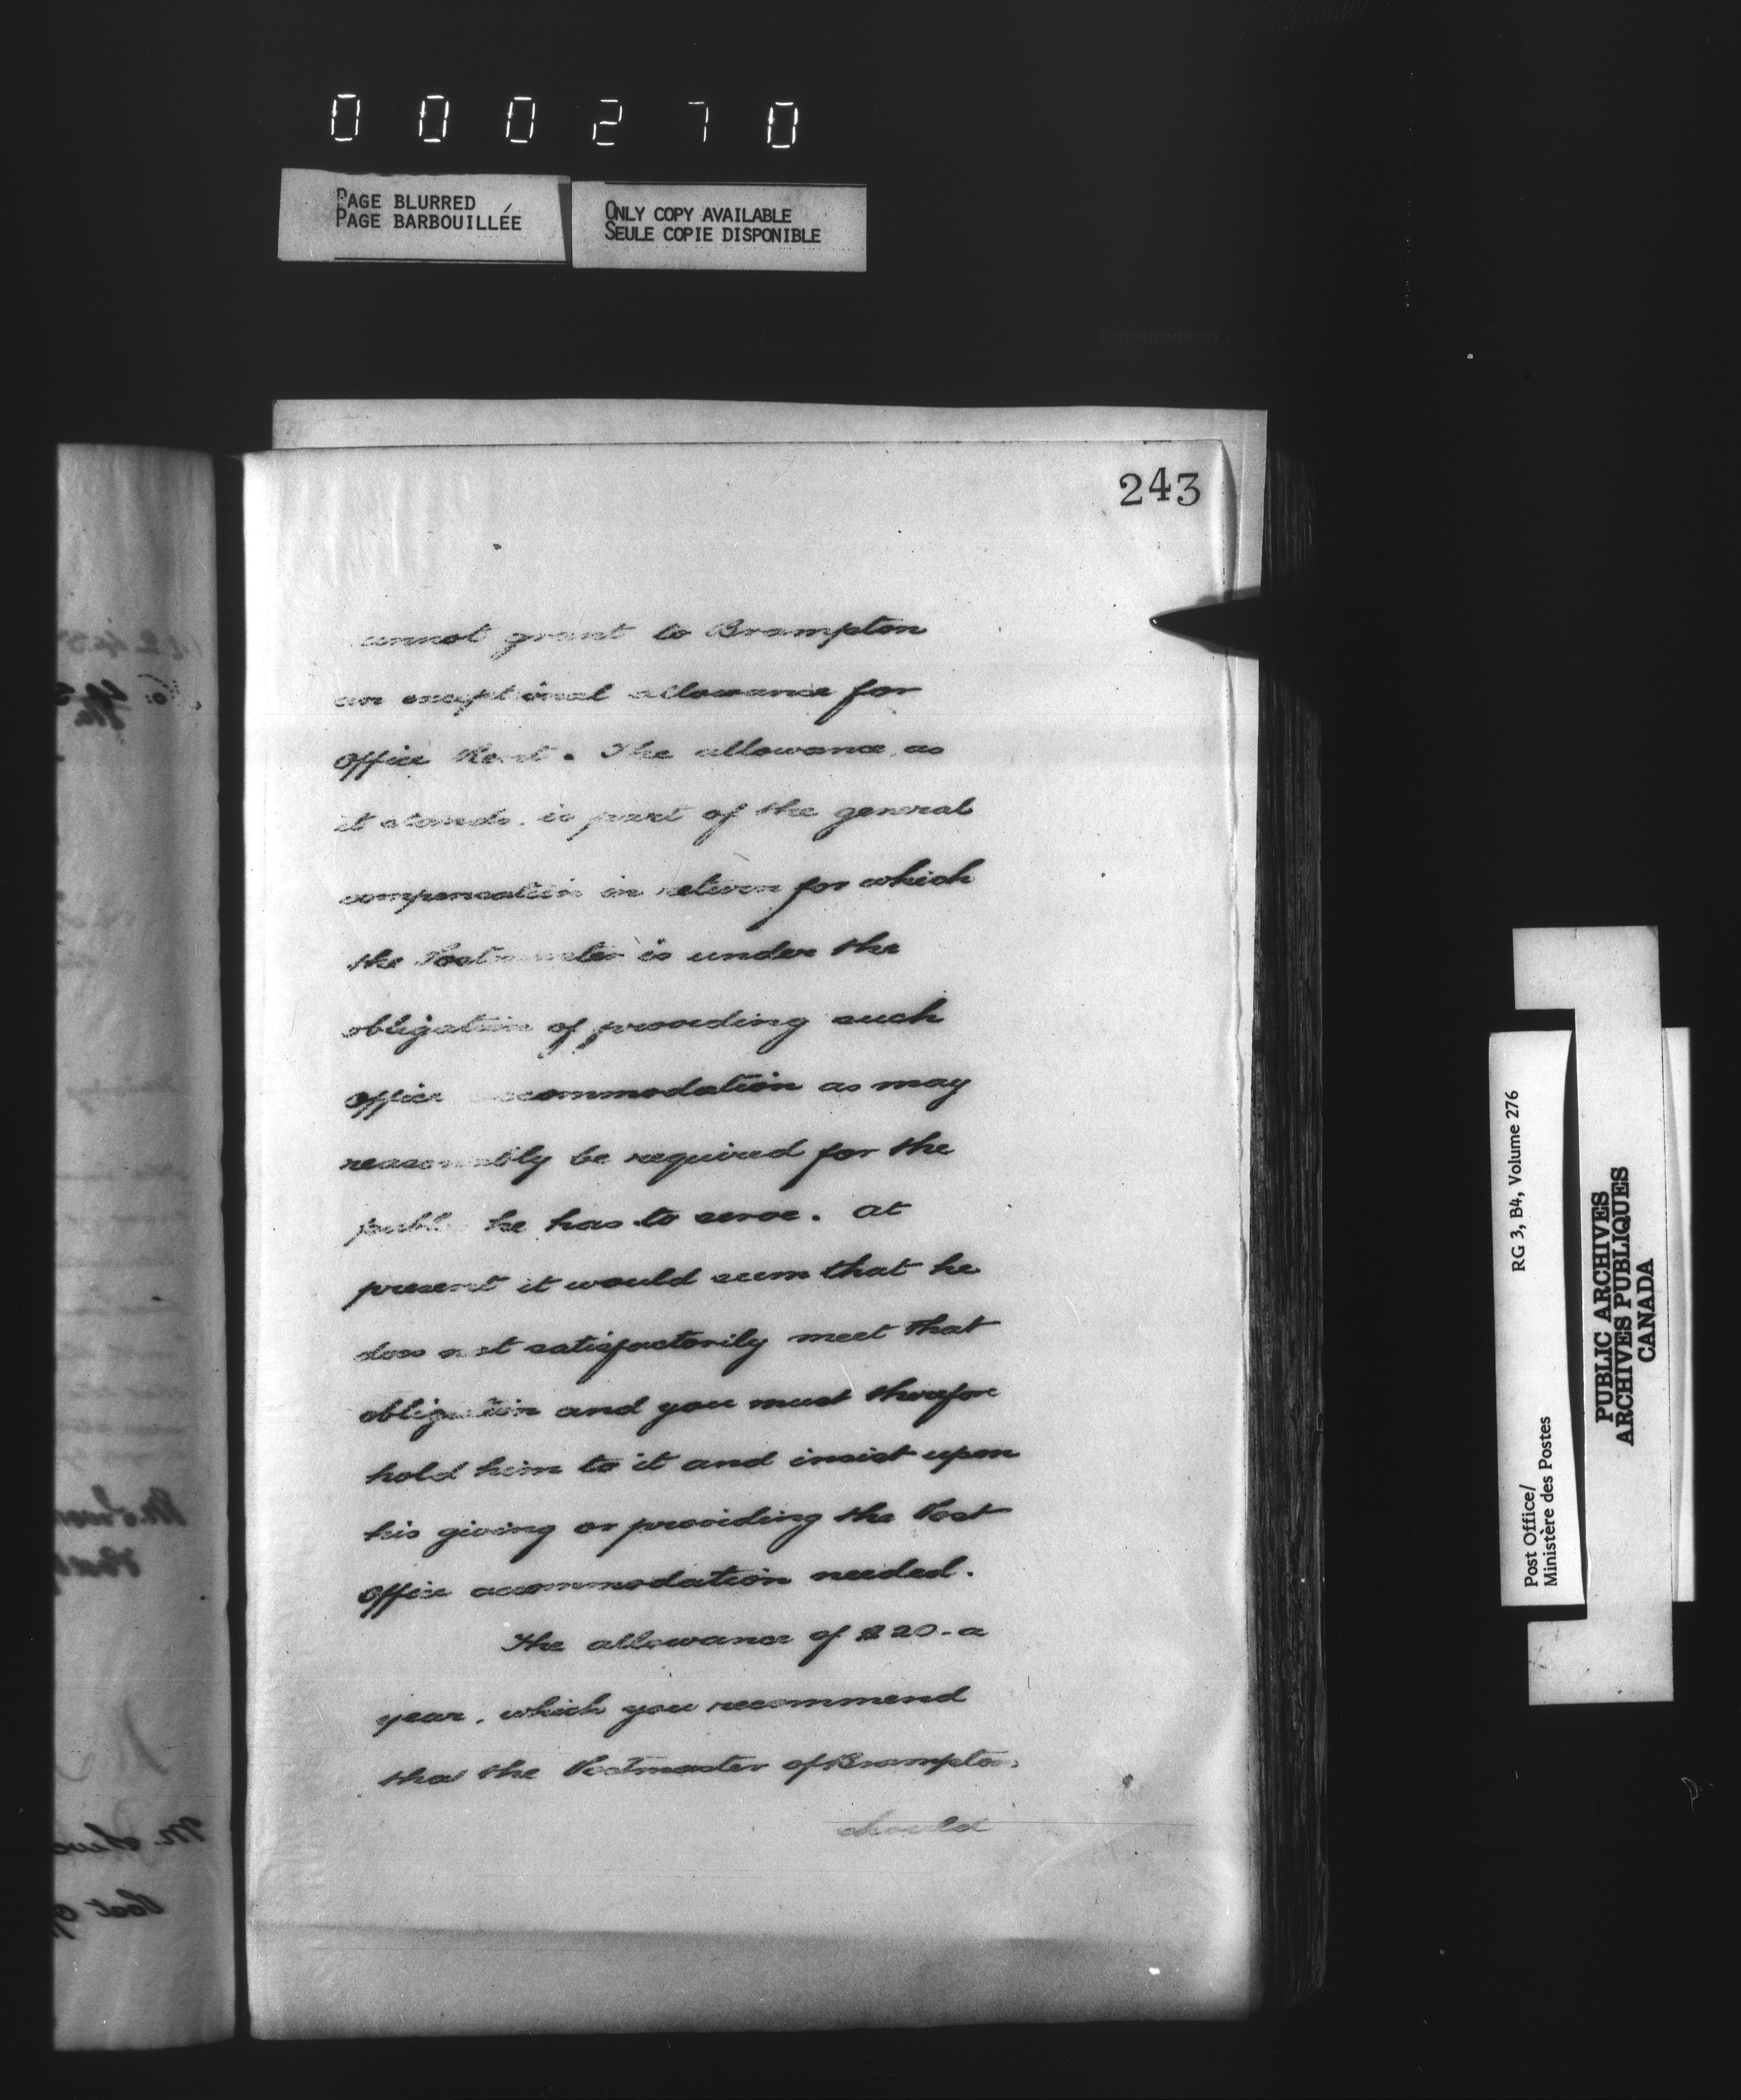 000270
PAGE BLURRED
PAGE BARBOUILLÉE
ONLY COPY AVAILABLE
SEULE COPIE DISPONIBLE
243
cannot grant to Brampton
an exceptional allowance for
Office Rent. The allowance, as
it stands, is part of the general
compensation in return for which
the Postmaster is under the
obligation of providing such
Office accommodation as may
reasonably be required for the
public he has to serve. At
present it would seem that he
does not satisfactorily meet that
obligation and you must therefore
hold him to it and insist upon
his giving or providing the Post
Office accommodation needed.
The allowance of $20 - a
year, which you recommend
that the Postmaster of Brampton
should
Post Office/
Ministère des Postes
RG 3, B4, Volume 276
PUBLIC ARCHIVES
ARCHIVES PUBLIQUES
CANADA